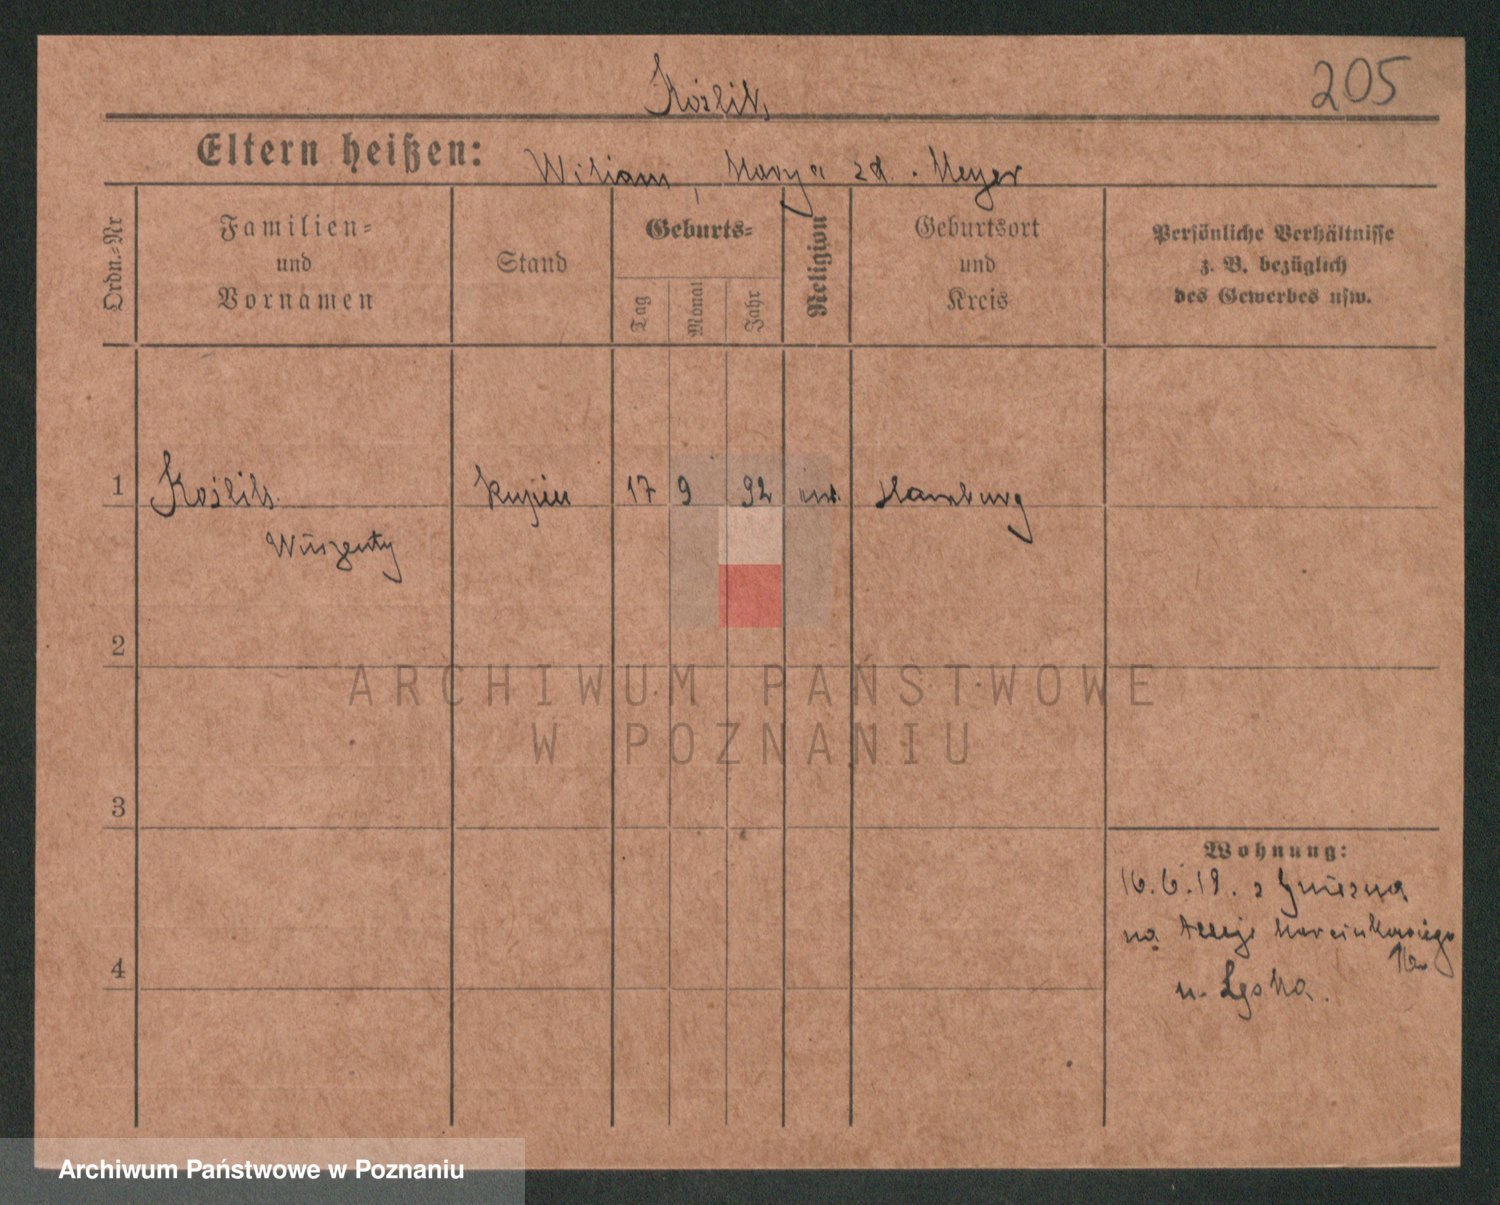 205
Koźlik
Eltern heißen: Wiliam, Marya zd. Meyer
Ordn.-Nr
Familien-
und
Vornamen
Stand
Geburts-
Tag
Monat
Jahr
Religion
Geburtsort
und
Kreis
Persönliche Verhältnisse
z. B. bezüglich
des Gewerbes usw.
1 Koźlik kupiec 17 9 92 Hamburg
2
3
4
Wohnung:
16.6.19. z Gniezna
na Aleje Marcinkowskiego
u.
ARCHIWUM PAŃSTWOWE
W POZNANIU
Archiwum Państwowe w Poznaniu